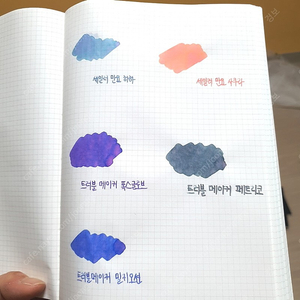 세일러 만요
세일러 만요
트러블 메이커 폭스글로브
트러블 메이커 페트리코
트러블메이커 밀키오션